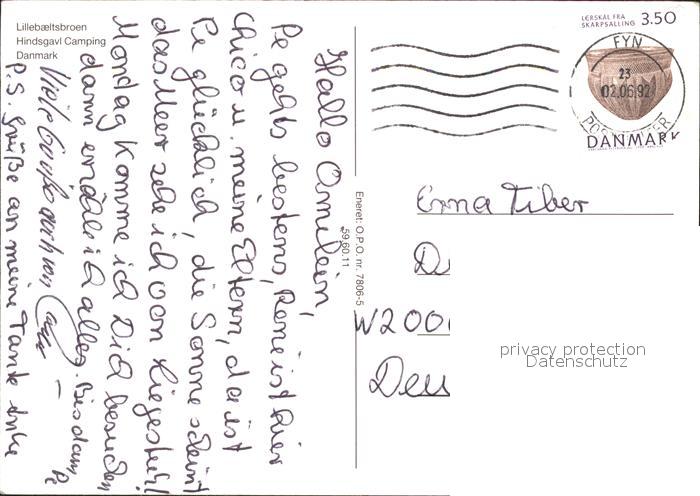 Lillebæltsbroen
Hindsgavl Camping
Danmark
Hallo Omilein,
Pe gehts bestens, René ist hier
Chico u. meine Eltern, da ist
Pe glücklich, die Sonne scheint
das Meer sehe ich vom Liegestuhl
Montag komme ich Dich besuchen
dann erzähle ich alles. Bis dann Pe
Viele Grüße auch von
P.S. Grüße an meine Tante Anke
Eneret: O.P.O. nr. 7806-5
59.60.11
LERSKÅL FRA
SKARPSALLING 3.50
FYN
23
02.06.92
DANMARK
Erna Tiber
W200
privacy protection
Datenschutz